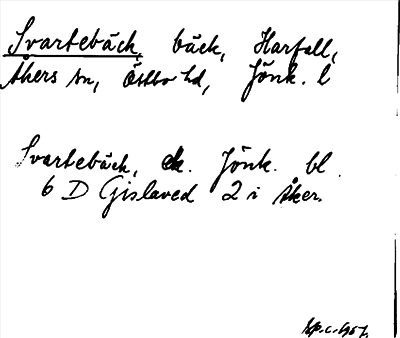 Svartebäck, bäck, Harfall,
Åkers sn, Östbo hd, Jönk. l
Svartebäck, ek. Jönk. bl.
6 D Gislaved 2 i Åker.